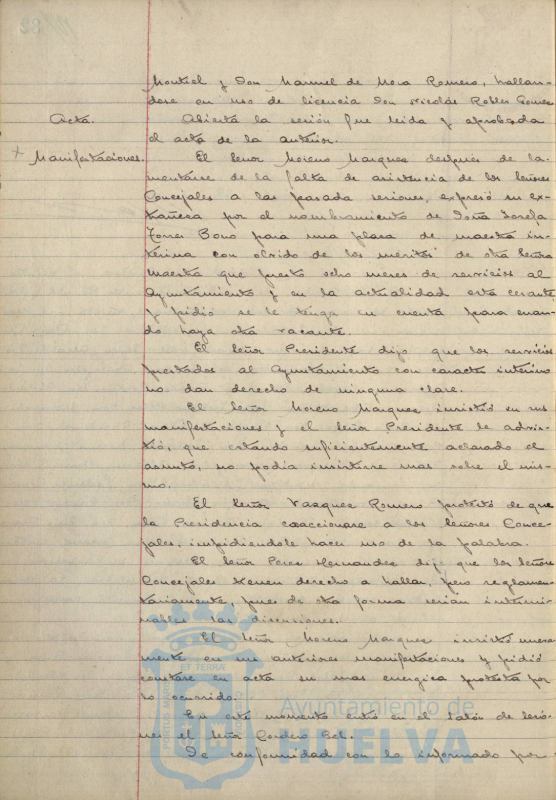 Montiel y Don Manuel de Mora Romero, hallan-
dose en uso de licencia Don Nicolás Robles Gomez
Acta. Abierta la sesión fue leida y aprobada
el acta de la anterior.
+ Manifestaciones. El Señor Moreno Marquez despues de la-
mentarse de la falta de asistencia de los Señores
Concejales a las pasadas sesiones, expresó su ex-
trañeza por el nombramiento de Doña
Torres Bono para una plaza de maestra in-
terina con olvido de los meritos de otra Señora
Maestra que prestó ocho meses de servicios al
Ayuntamiento y en la actualidad está cesante
y pidió se le tenga en cuenta para cuan-
do haya otra vacante.
El Señor Presidente dijo que los servicios
prestados al Ayuntamiento con caracter interino
no dan derecho de ninguna clase.
El Señor Moreno Marquez insistió en sus
manifestaciones y el Señor Presidente le advir-
tió, que estando suficientemente aclarado el
asunto, no podia insistirse mas sobre el mis-
mo.
El Señor Vazquez Romero protestó de que
la Presidencia coaccionase a los Señores Conce-
jales, impidiendole hacer uso de la palabra.
El Señor Perez Hernandez dijo que los Señores
Concejales tienen derecho a hablar, pero reglamen-
tariamente, pues de otra forma serian intermi-
nables las discusiones.
El Señor Moreno Marquez insistió nueva-
mente en sus anteriores manifestaciones y pidió
constase en acta su mas energica protesta por
lo ocurrido.
En este momento entró en el Salón de Sesio-
nes el Señor Cordero Bel.
De conformidad con lo informado por
PORTUS MARIS ET TERRÆ CUSTODIA
Ayuntamiento de
HUELVA